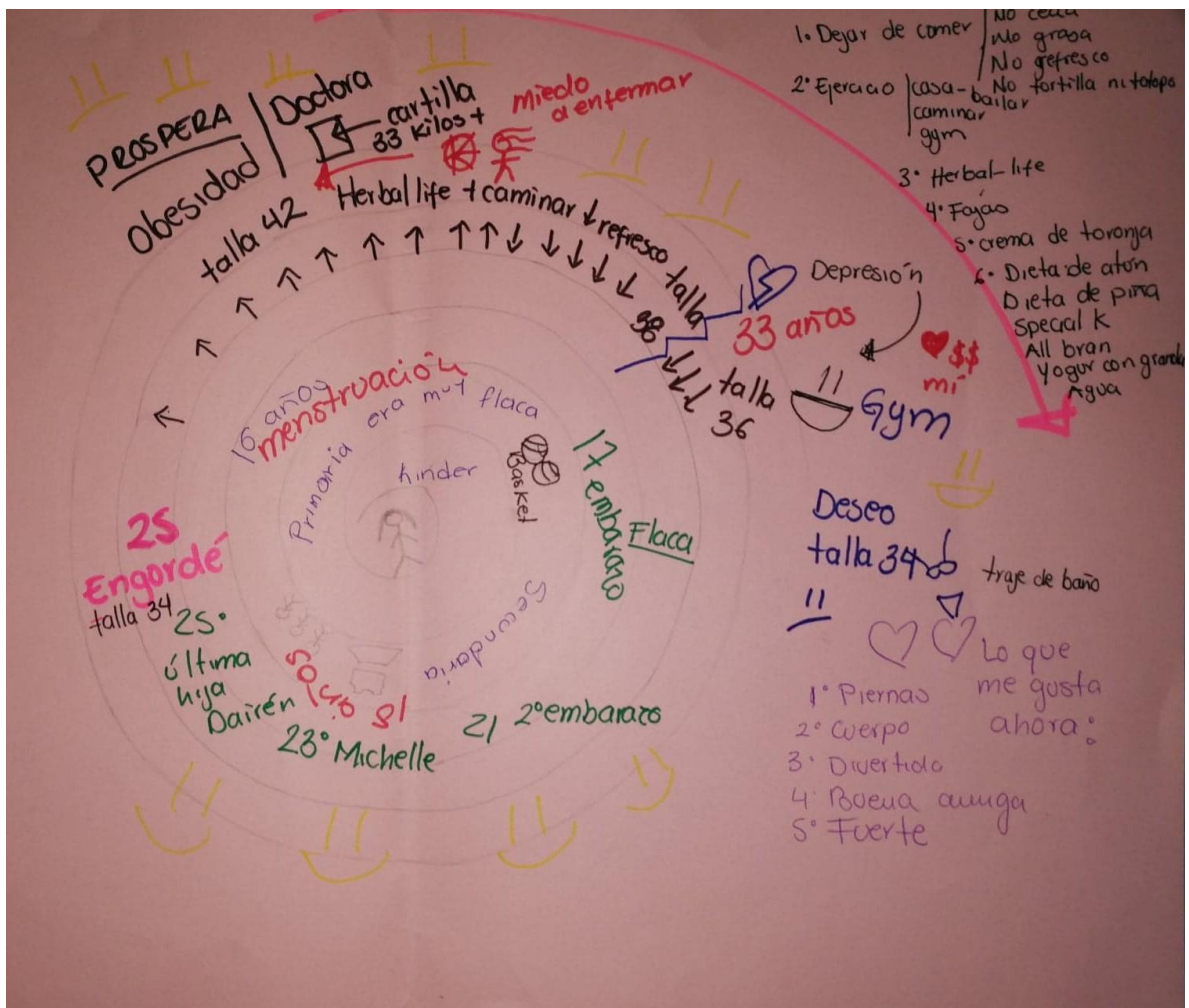 PROSPERA
Obesidad
Doctora
cartilla
33 kilos +
miedo
a enfermar
talla 42
Herbal life + caminar ↓ refresco talla
38
33 años
Depresión
$$
mí
talla
36
Gym
1. Dejar de comer
No cena
No grasa
No refresco
No tortilla ni totopo
2° Ejercicio
casa-bailar
caminar
gym
3° Herbal-life
4° Fajas
5° crema de toronja
6° Dieta de atún
Dieta de piña
Special K
All bran
Yogur con granola
Agua
16 años
menstruación
Primaria era muy flaca
kinder
Basket
Secundaria
17 embarazo
Flaca
18 años
21 2° embarazo
23° Michelle
25
Engordé
talla 34
25°
última
hija
Dairén
Deseo
talla 34
traje de baño
Lo que
me gusta
ahora:
1° Piernas
2° Cuerpo
3° Divertida
4° Buena amiga
5° Fuerte